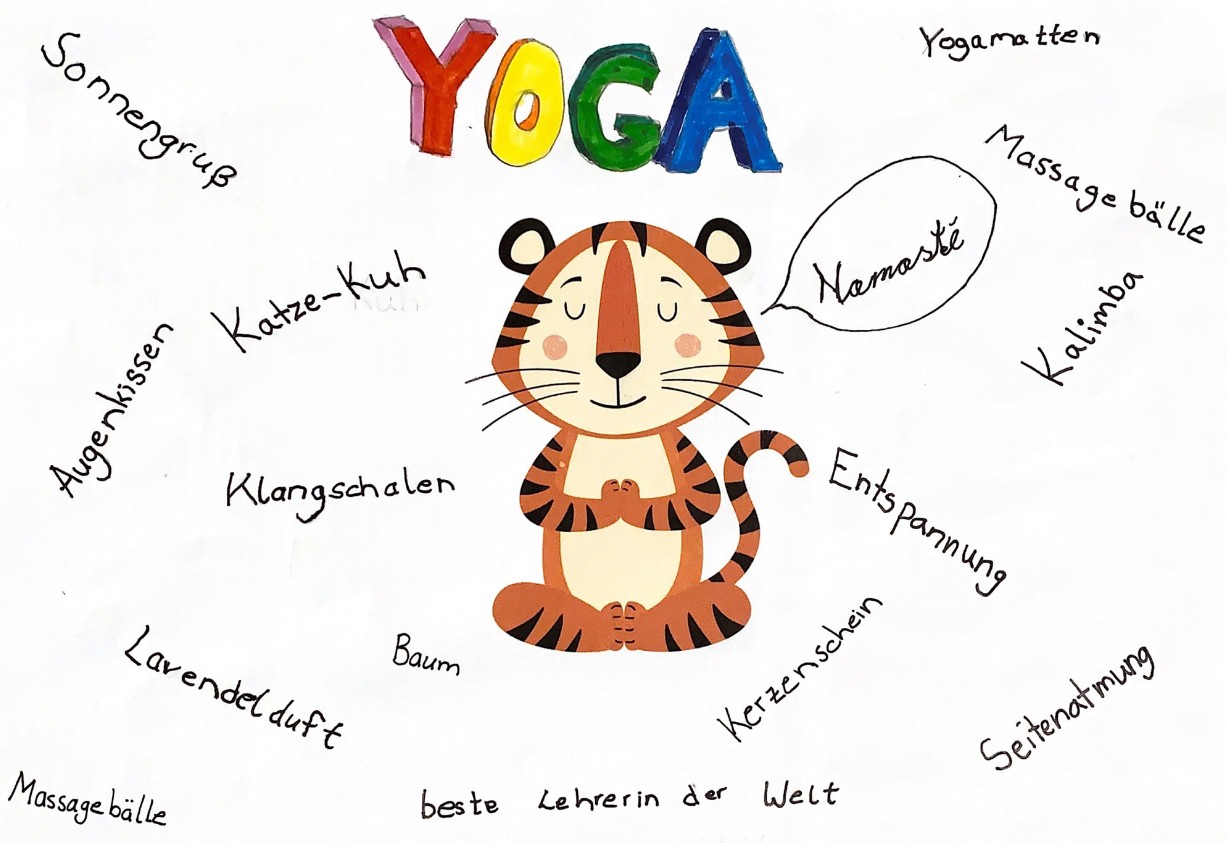 YOGA
Yogamatten
Sonnengruß
Massagebälle
Namasté
Katze-Kuh
Kalimba
Augenkissen
Klangschalen
Entspannung
Lavendelduft
Baum
Kerzenschein
Seitenatmung
Massagebälle
beste Lehrerin der Welt